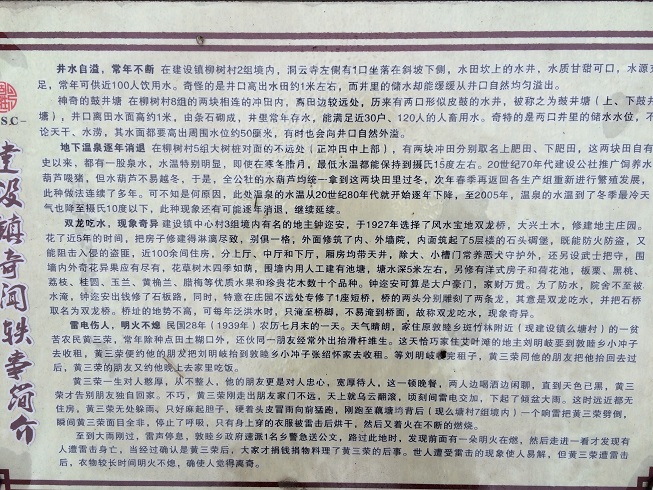 S.C
建设镇奇闻轶事简介
井水自溢，常年不断 在建设镇柳树村2组境内，洞云寺左侧有1口坐落在斜坡下侧，水田坎上的水井，水质甘甜可口，水源充
足，常年可供近100人饮用水。奇怪的是井口高出水田约1米左右，而井里的储水却能缓缓从井口自然均匀溢出。
神奇的鼓井塘 在柳树村8组的两块相连的冲田内，离田边较远处，历来有两口形似皮鼓的水井，被称之为鼓井塘（上、下鼓井
塘），井口离田水面高约1米，由条石砌成，井里常年存水，能满足近30户、120人的人畜用水。奇特的是两口井里的储水水位，不
论天干、水涝，其水面都要高出周围水位约50厘米，有时也会向井口自然外溢。
地下温泉逐年消退 在柳树村5组大树桩对面的不远处（正冲田中上部），有两块冲田分别取名上肥田、下肥田，这两块田自有
史以来，都有一股泉水，水温特别明显，即使在寒冬腊月，最低水温都能保持到摄氏15度左右。20世纪70年代建设公社推广饲养水
葫芦喂猪，但水葫芦不易越冬，于是，全公社的水葫芦均统一拿到这两块田里过冬，次年春季再返回各生产组重新进行繁殖发展，
此种做法连续了多年。可不知是何原因，此处温泉的水温从20世纪80年代就开始逐年下降，至2005年，温泉的水温到了冬季最冷天
气也降至摄氏10度以下，此种现象还有可能逐年消退，继续延续。
双龙吃水，现象奇异 建设镇中心村3组境内有名的地主钟迩安，于1927年选择了风水宝地双龙桥，大兴土木，修建地主庄园。
花了近5年的时间，把房子修建得淋漓尽致，别俱一格；外面修筑了内、外墙院，内面筑起了5层楼的石头碉堡，既能防火防盗，又
能阻击入侵的盗匪，近100余间住房，分上厅、中厅和下厅，厢房均带天井，除大、小槽门常养恶犬守护外，还另设武士把守，围
墙内外奇花异果应有尽有，花草树木四季如荫，围墙内用人工建有池塘，塘水深5米左右，另修有洋式房子和荷花池，板栗、黑桃、
荔枝、桂圆、玉兰、黄桷兰、腊梅等优质水果和珍贵花木数十个品种。钟迩安可算是大户豪门，家财万贯。为了防水，院舍不至被
水淹，钟迩安出钱修了石板路，同时，特意在庄园不远处专修了1座短桥，桥的两头分别雕刻了两条龙，其意是双龙吃水，并把石桥
取名为双龙桥。桥址的地势不高，可每年泛洪水时，只淹至桥脚，不易淹到桥面，故称双龙吃水，现象奇异。
雷电伤人，明火不熄 民国28年（1939年）农历七月末的一天。天气晴朗，家住原敦睦乡斑竹林附近（现建设镇么塘村）的一贫
苦农民黄三荣，常年除种点田土糊口外，还伙同一朋友经常外出抬滑杆维生。这天恰巧家住艾叶滩的地主刘明岐要到敦睦乡小冲子
去收租，黄三荣便约他的朋友把刘明岐抬到敦睦乡小冲子张绍怀家去收租。等刘明岐收完租子，黄三荣同他的朋友把他抬回去过
后，黄三荣的朋友又约他晚上去家里吃饭。
黄三荣一生对人憨厚，从不整人，他的朋友更是对人忠心，宽厚待人，这一顿晚餐，两人边喝酒边闲聊，直到天色已黑，黄三
荣才告别朋友独自回家。不巧，黄三荣刚走出朋友家门不远，天上就乌云翻滚，顷刻间雷电交加，下起了倾盆大雨。这时远近都无
住房，黄三荣无处躲雨，只好麻起胆子，硬着头皮冒雨向前猛跑，刚跑至藕塘垮背后（现么塘村7组境内）一个响雷把黄三荣劈倒，
瞬间黄三荣面目全非，停止了呼吸，只有身上穿的衣服被雷击后烘干，然后又着火在不断的燃烧。
至到大雨刚过，雷声停息，敦睦乡政府速派1名乡警急送公文，路过此地时，发现前面有一朵明火在燃，然后走进一看才发现有
人遭雷击身亡，当经过确认是黄三荣后，大家才捐钱捐物料理了黄三荣的后事。世人遭受雷击的现象使人易解，但黄三荣遭雷击
后，衣物较长时间明火不熄，确使人觉得离奇。